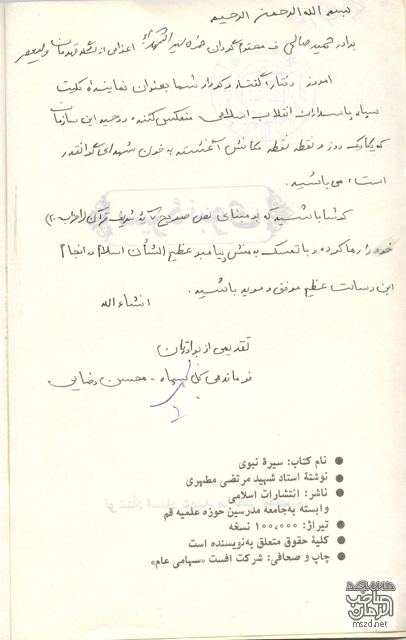 بسم الله الرحمن الرحیم
برادر حمید صالحی ف. محترم گردان حمزه سیدالشهداء اعزامی از لشکر قهرمان ولیعصر
امروز رفتار، گفتار و کردار شما بعنوان نماینده کلیت
سپاه پاسداران انقلاب اسلامی منعکس کننده روحیه این سازمان
کوچک روز و نقطه نقطه مکانش آغشته به خون شهدای گرانقدر
است، می باشید.
کوشا باشید که بر مبنای نص صریح آیه شریف قرآن (احزاب ۲۰)
خود را رها کرده و با تمسک به منش پیامبر عظیم الشأن اسلام در انجام
این رسالت عظیم موفق و موید باشید.
انشاء الله
تقدیمی از برادرتان
فرمانده کل سپاه - محسن رضایی
نام کتاب: سیرهٔ نبوی
نوشتهٔ استاد شهید مرتضی مطهری
ناشر: انتشارات اسلامی
وابسته به‌جامعه مدرسین حوزه علمیه قم
تیراژ: ۱۰۰،۰۰۰ نسخه
کلیهٔ حقوق متعلق به‌نویسنده است
چاپ و صحافی: شرکت افست «سهامی عام»
صاحب الزمان
mszd.net